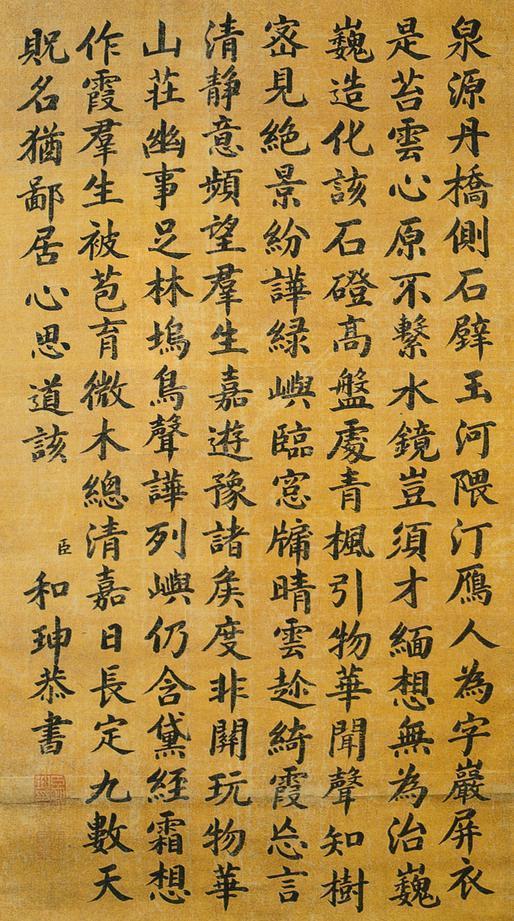 泉源丹橋側石壁玉河隈汀鴈人為字巖屏衣
是苔雲心原不繫水鏡豈須才緬想無為治巍
巍造化該石磴髙盤處青楓引物華聞聲知樹
宻見絶景紛譁緑嶼臨窓牖晴雲趂綺霞忘言
清静意頻望羣生嘉遊豫諸矦度非關玩物華
山莊幽事足林塢鳥聲譁列嶼仍含黛經霜想
作霞羣生被苞育微木總清嘉日長定九數天
貺名猶鄙居心思道該 臣 和珅恭書